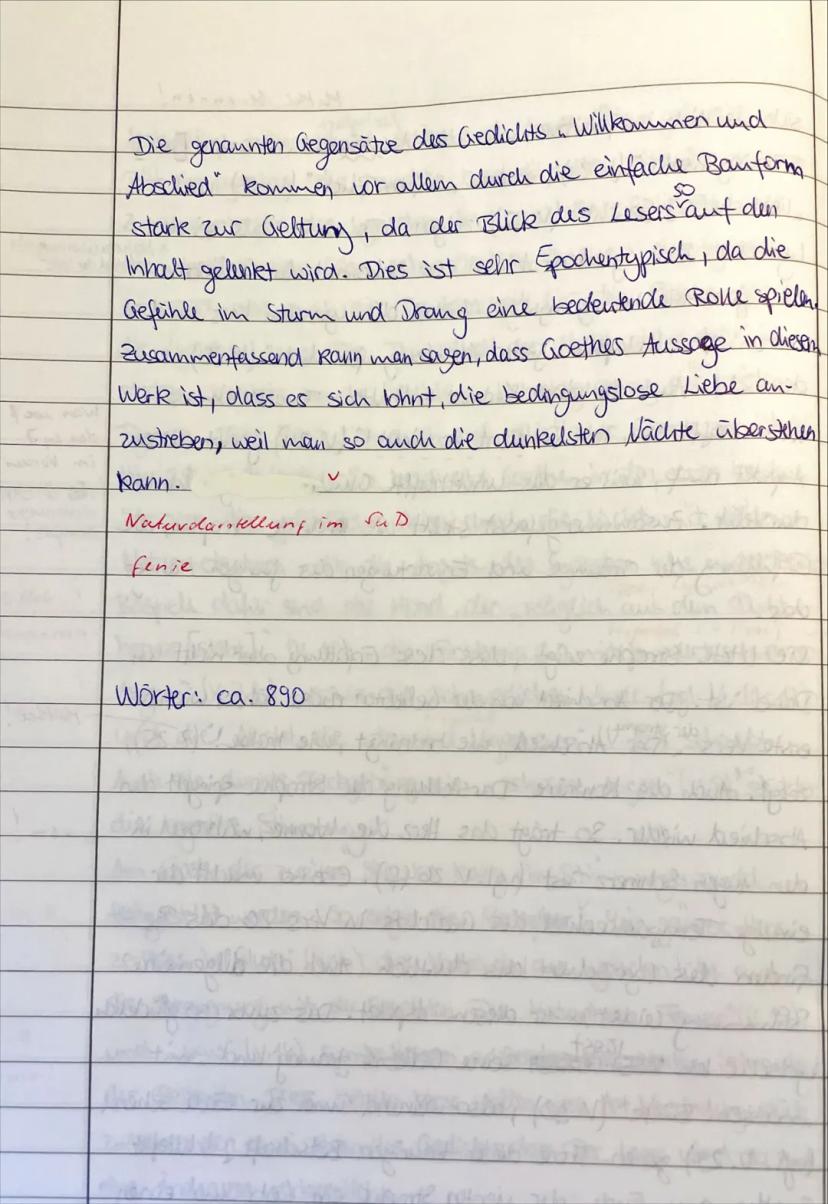 Die genannten Gegensätze des Gedichts „Willkommen und
Abschied" kommen vor allem durch die einfache Bauform
stark zur Geltung, da der Blick des Lesers so auf den
Inhalt gelenkt wird. Dies ist sehr Epochentypisch, da die
Gefühle im Sturm und Drang eine bedeutende Rolle spielen.
Zusammenfassend kann man sagen, dass Goethes Aussage in diesem
Werk ist, dass es sich lohnt, die bedingungslose Liebe an-
zustreben, weil man so auch die dunkelsten Nächte überstehen
kann.
Naturdarstellung im SuD
Genie
Wörter: ca. 890